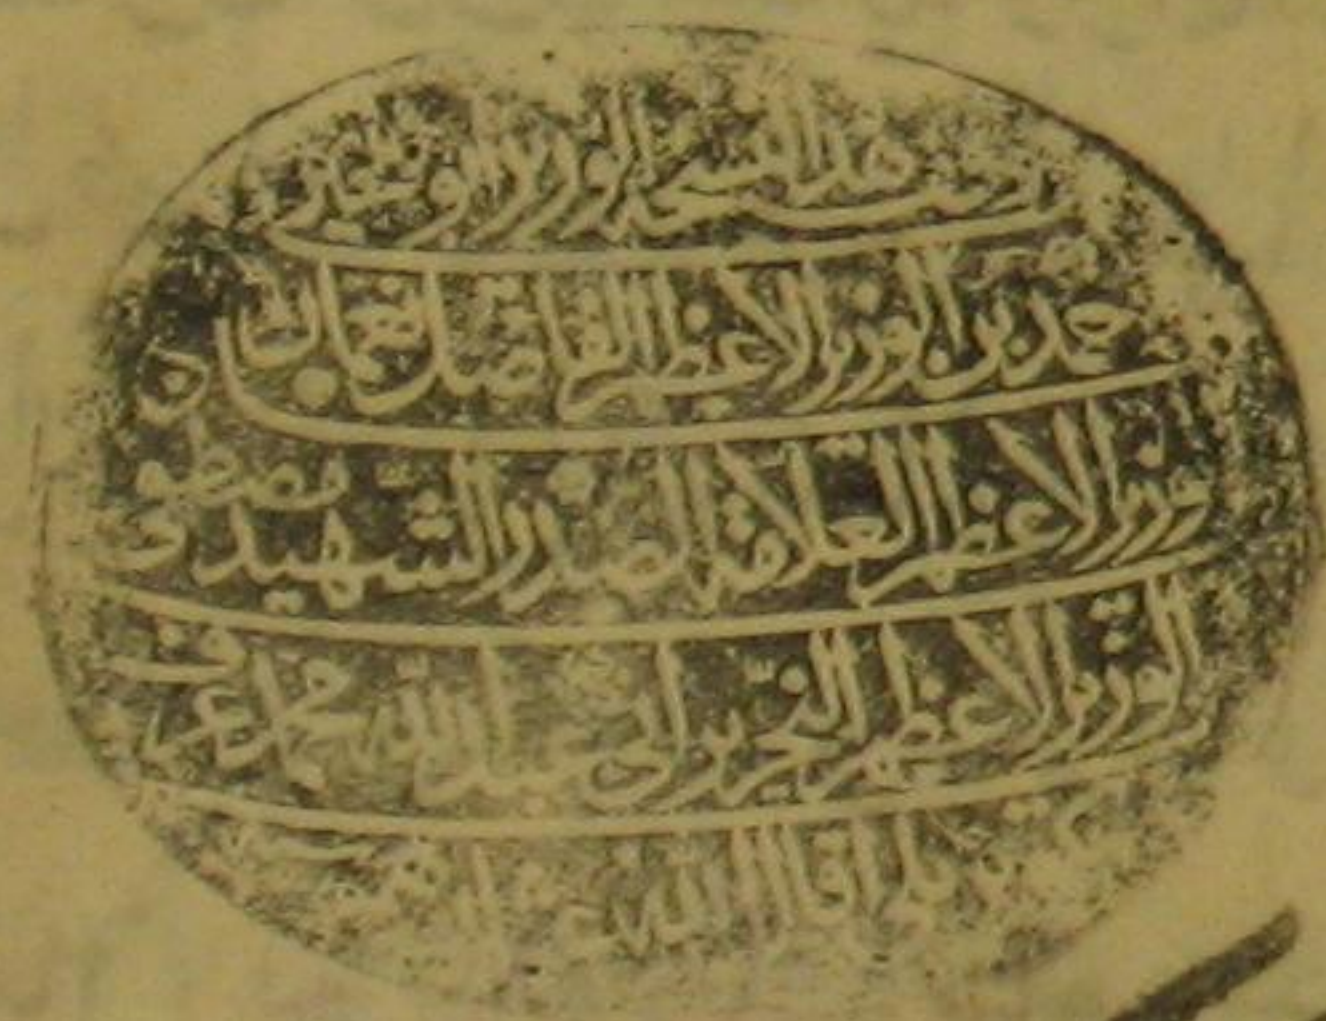 وقف هذه النسخة الوزير ابو
احمد بن الوزير الاعظم الفاضل نعمان ابن
الوزير الاعظم العلامة الصدر الشهيد مصطفى
الوزير الاعظم النحرير ابى عبد الله محمد عرف
اقال الله